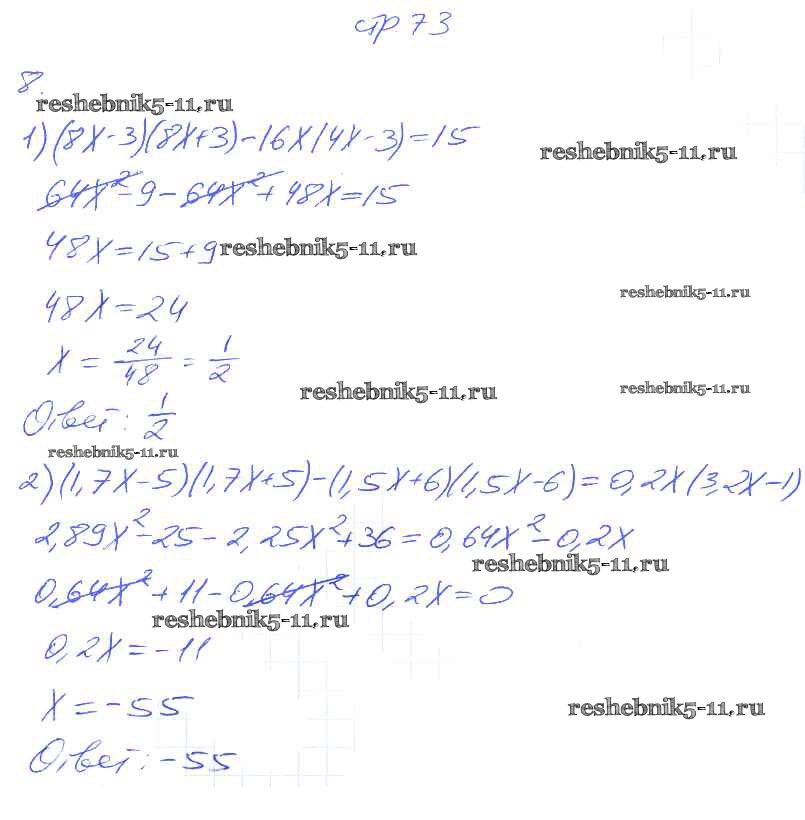 стр 73
8.
reshebnik5-11.ru
1) (8x-3)(8x+3)-16x(4x-3)=15
reshebnik5-11.ru
64x²-9-64x²+48x=15
48x=15+9
reshebnik5-11.ru
reshebnik5-11.ru
48x=24
x = 24/48 = 1/2
reshebnik5-11.ru
reshebnik5-11.ru
Ответ: 1/2
reshebnik5-11.ru
2) (1,7x-5)(1,7x+5)-(1,5x+6)(1,5x-6)=0,2x(3,2x-1)
2,89x²-25-2,25x²+36=0,64x²-0,2x
reshebnik5-11.ru
0,64x²+11-0,64x²+0,2x=0
reshebnik5-11.ru
0,2x=-11
x=-55
reshebnik5-11.ru
Ответ: -55